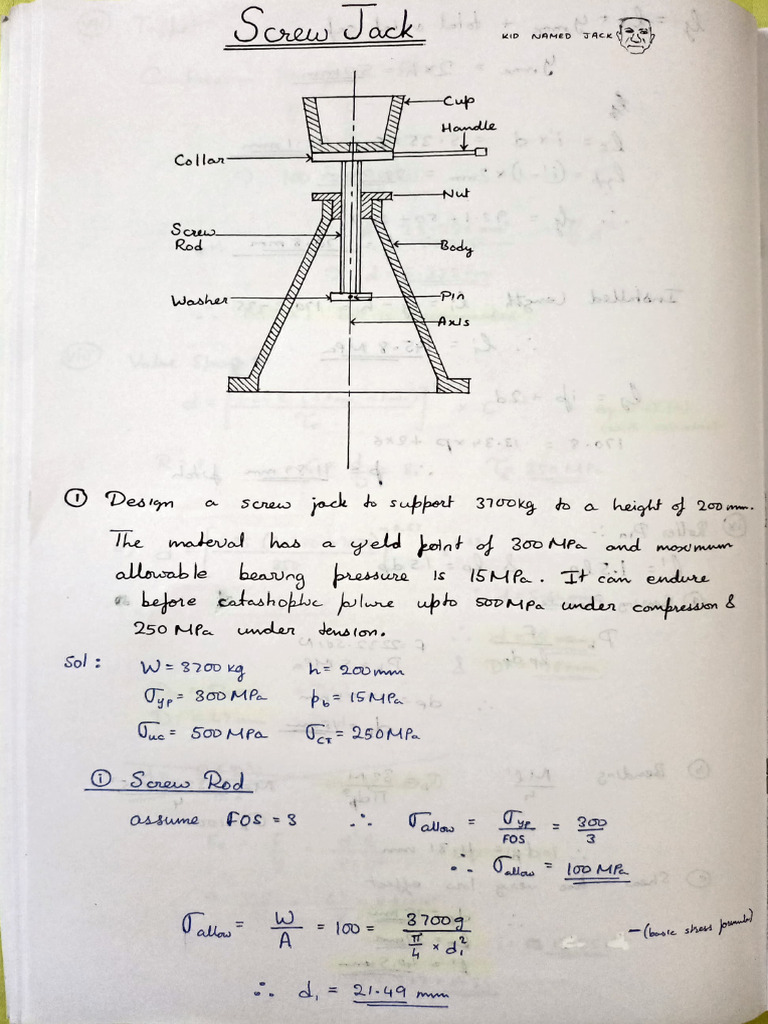 Screw Jack
KID NAMED JACK
Cup
Handle
Collar
Nut
Screw
Rod
Body
Washer
Pin
Axis
① Design a screw jack to support 3700kg to a height of 200mm.
The material has a yield point of 300MPa and maximum
allowable bearing pressure is 15MPa. It can endure
before catashophic failure upto 500MPa under compression &
250 MPa under tension.
Sol : W = 3700 kg h = 200mm
σyp = 300 MPa pb = 15MPa
σuc = 500 MPa σCT = 250MPa
① Screw Rod
assume FOS = 3 ∴ σallow = σyp / FOS = 300 / 3
∴ σallow = 100 MPa
σallow = W / A = 100 = 3700g / π/4 × d₁² – (basic stress formula)
∴ d₁ = 21.49 mm